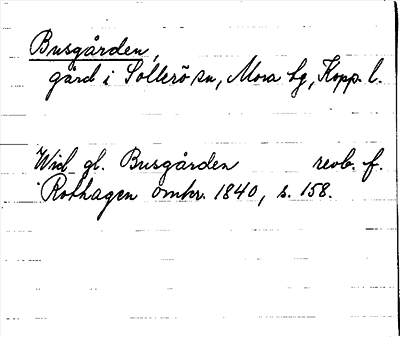 Busgården,
gård i Sollerö sn, Mora tg, Kopp. l.
Wid gl. Busgården reob. f.
Rothagen omkr. 1840, s. 158.